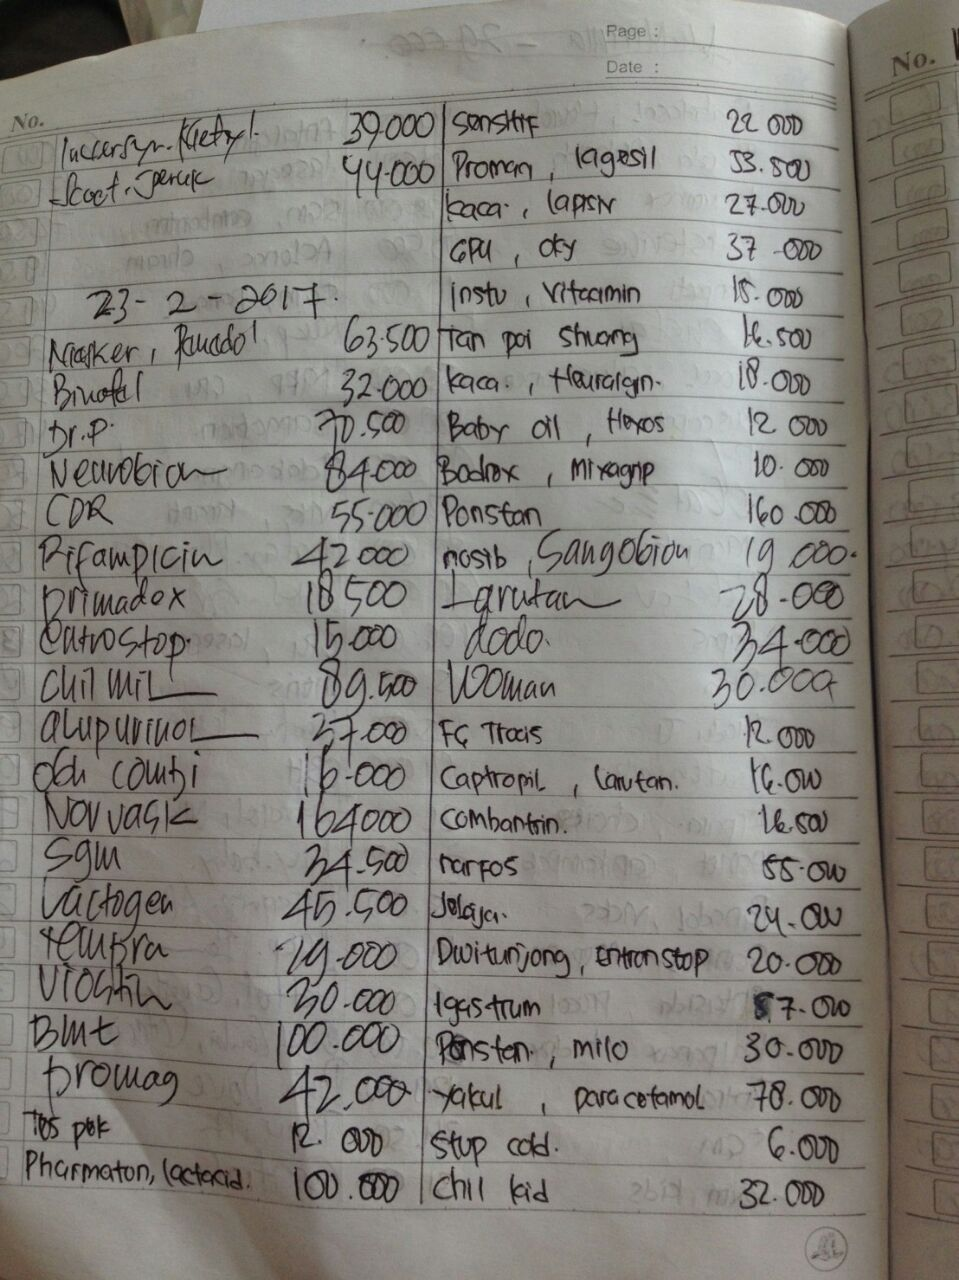 Page :
Date :
No.
39.000
Scot. Jeruk 44.000
23 - 2 - 2017.
Masker, Panadol 63.500
32.000
Dr.P. 70.500
Neurobion 84.000
CDR 55.000
Rifampicin 42.000
primadex 18.500
entrostop. 15.000
Chil Mil 89.500
alupurinol 37.000
obh combi 16.000
Norvask 164000
Sgm 34.500
Lactogen 45.500
tempra 29.000
Viostin 30.000
Bmt 100.000
promag 42.000
Tes pek 12.000
Pharmaton, lactacid. 100.000
Sensitif 22 000
Promag, lagesil 33.500
kaca., lapisiv 27.000
GPU, oky 37.000
insto, Vitacimin 15.000
Tan poi shuang 16.500
kaca., 18.000
Baby oil, Hexos 12 000
Bodrex, mixagrip 10.000
Ponstan 160.000
nosib, Sangobion 19.000.
Larutan 28.000
dodo. 34.000
Woman 30.000
FG Trocis 12.000
Captropil, larutan. 16.000
Combantrin. 16.500
narfos 55.000
Jelaja. 24.000
Dwitunjong, Entronstop 20.000
Igastrum 57.000
Ponstan, milo 30.000
yakul, paracetamol 78.000
Stup cold. 6.000
Chil kid 32.000
No.